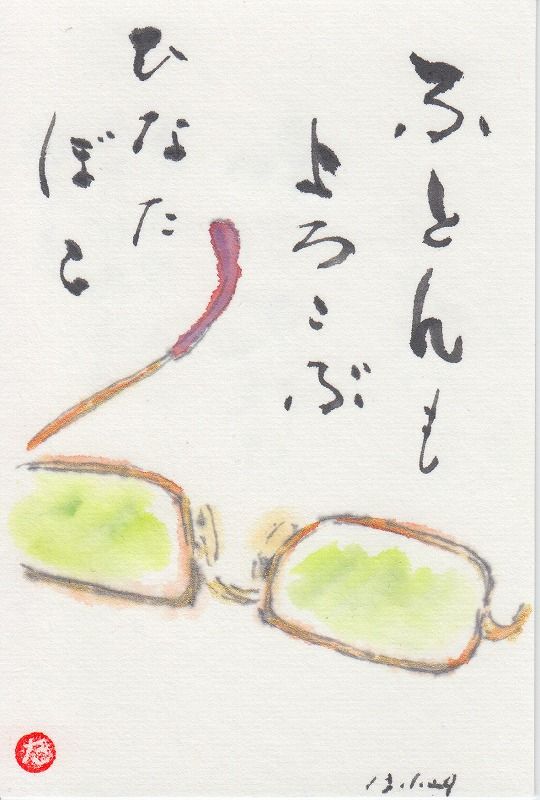 ふとんも
よろこぶ
ひなた
ぼこ
13.1.24